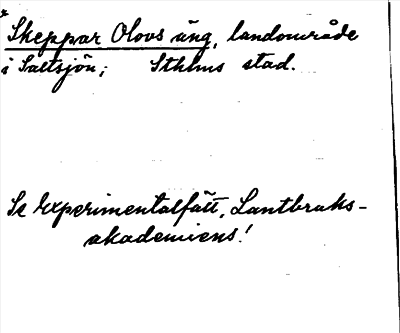 Skeppar Olovs äng, landområde
i Saltsjön; Sthlms stad.
Se Experimentalfält, Lantbruks-
akademiens!